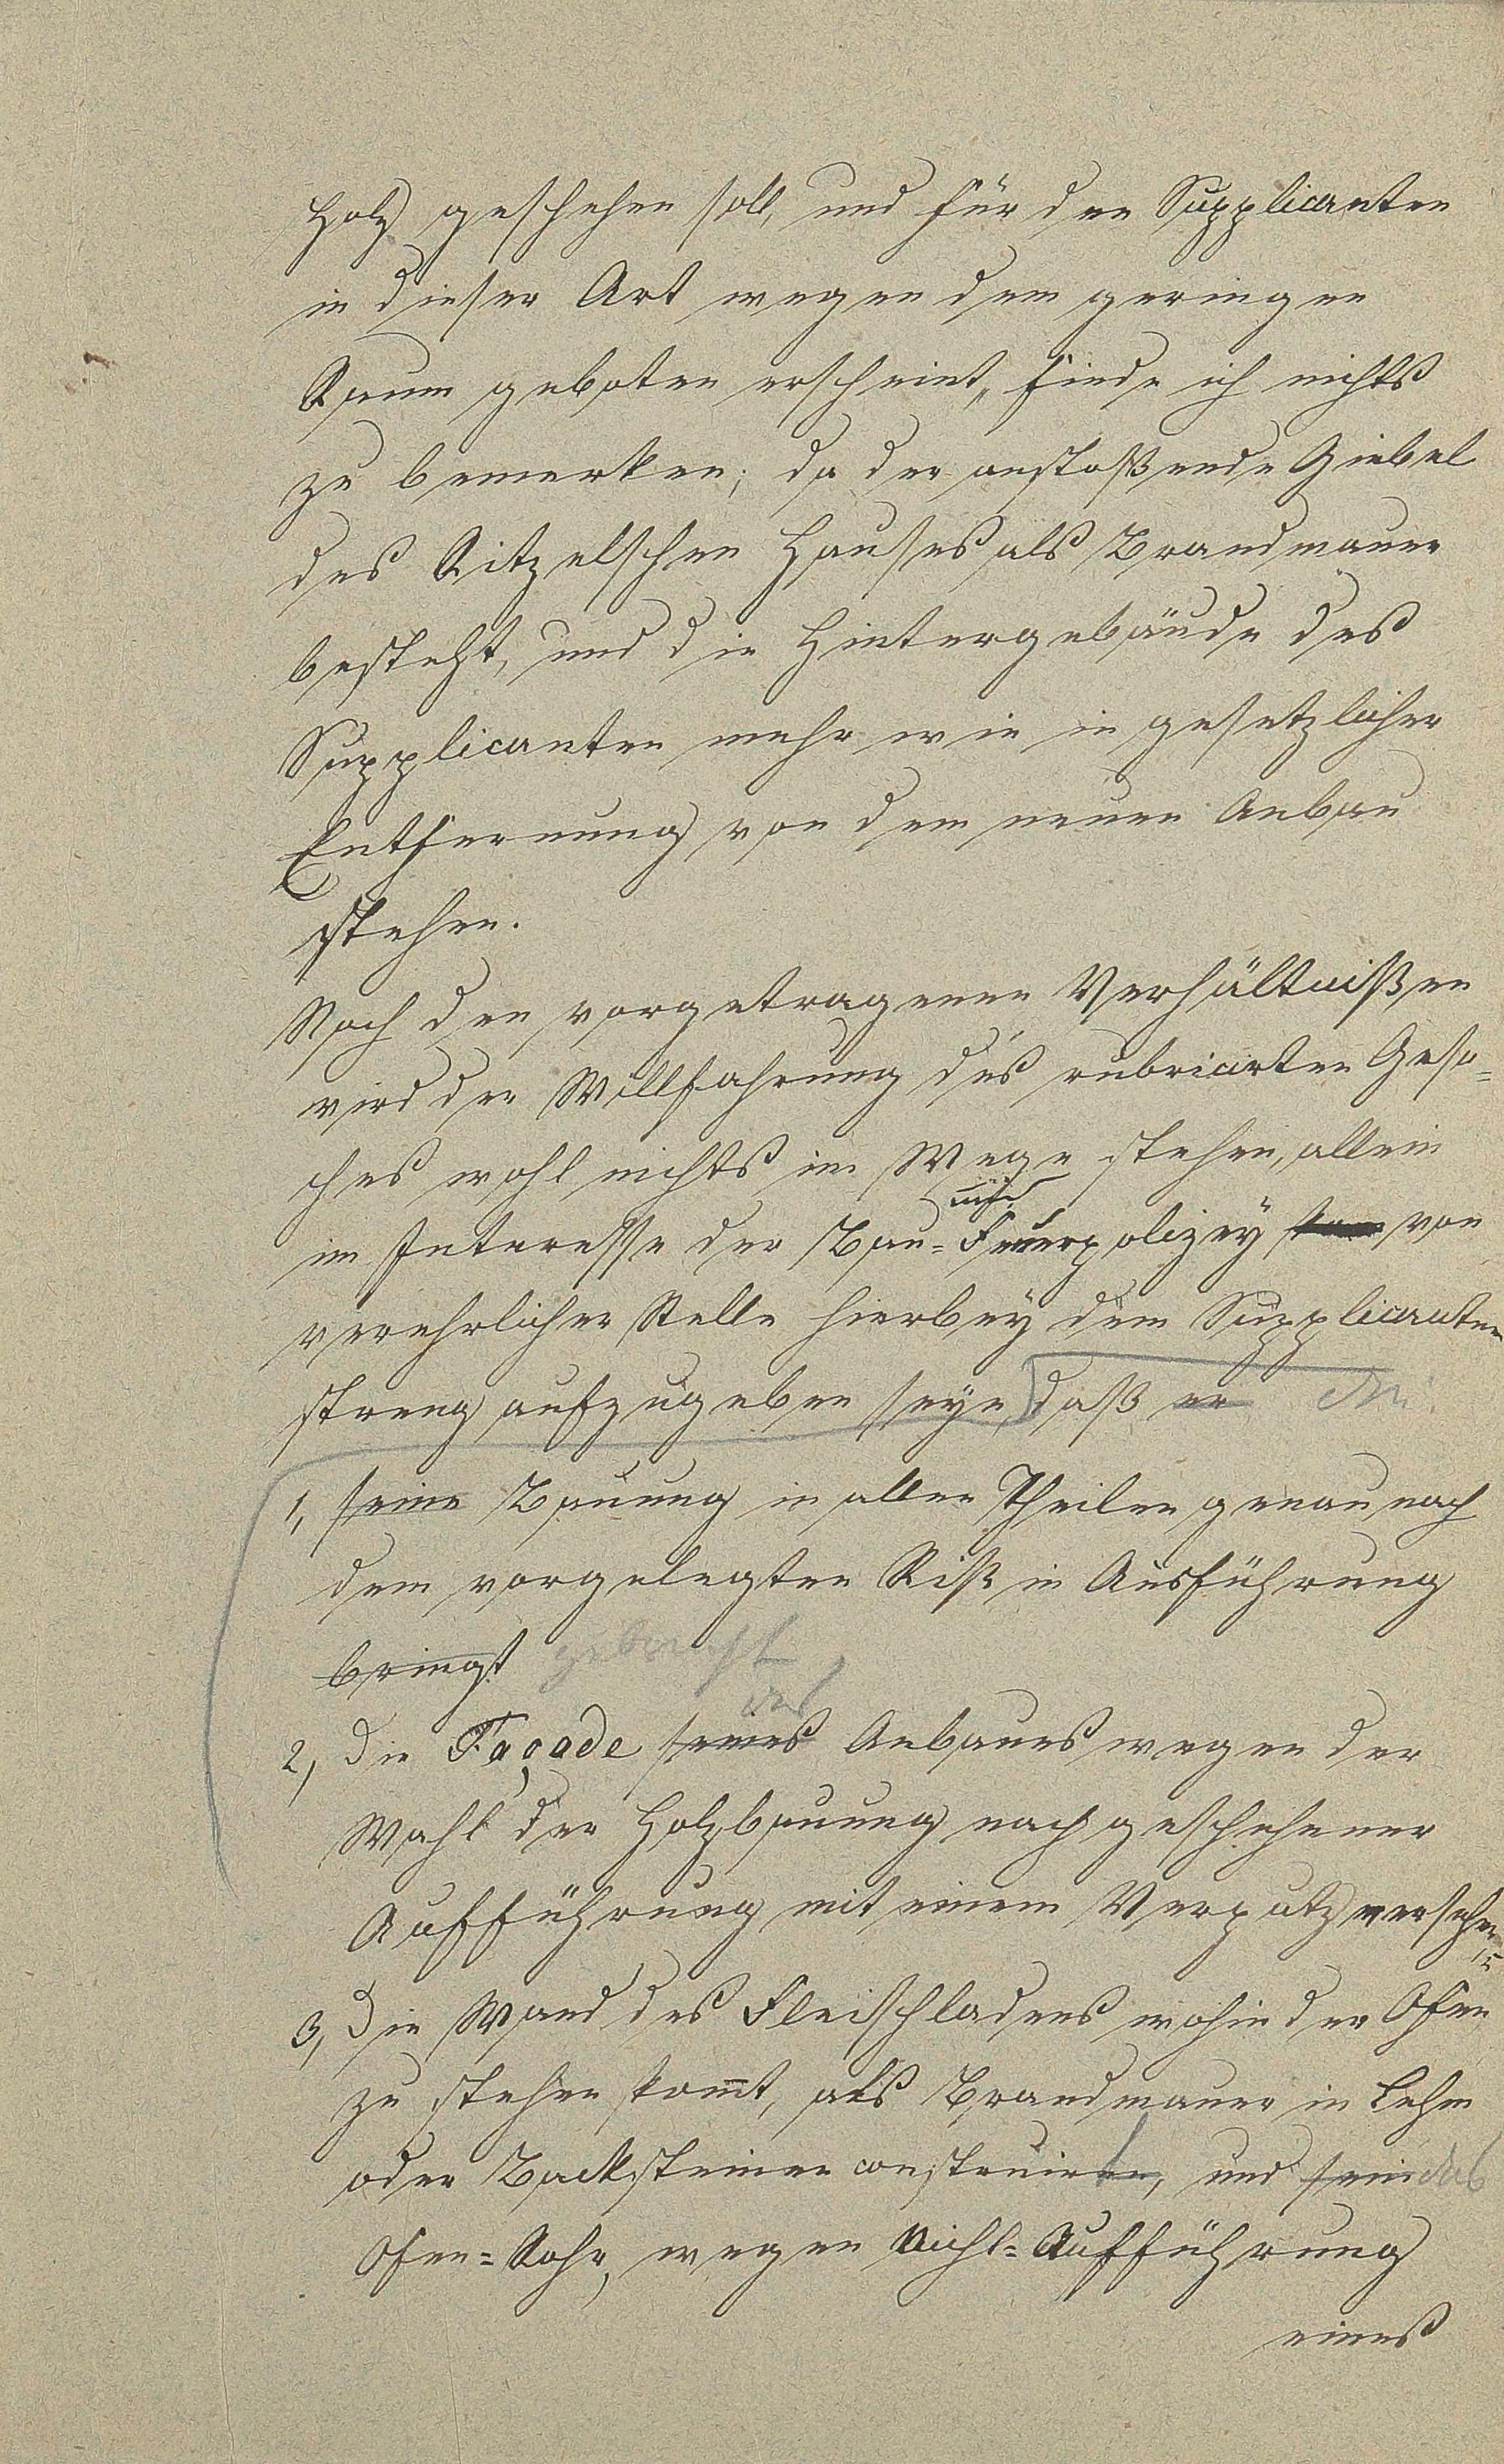 Holz geschehen soll, und für den Supplicanten
in dieser Art wegen dem geringen
Raum geboten erscheint, finde ich nichts
zu bemerken; da der anstoßende Giebel
des Ritzelschen Hauses als Brandmauer
besteht, und die Hintergebäude des
Supplicanten mehr wie in gesetzlicher
Entfernung von dem neuen Anbau
stehen.
Nach den vorgetragenen Verhältnißen
wird der Willfahrung des rubricirten Gesu-
ches wohl nichts im Wege stehen, allein
und
im Interesse der Bau- Feuerpolizey von
verehrlicher Stelle hierbey dem Supplicanten
streng aufzugeben seye, daß er die
1, seine Bauung in allen Theilen genau nach
dem vorgelegten Riß in Ausführung
bringt gebracht
des
2, die Façade seines Anbaues wegen der
Wahl der Holzbauung nach geschehener
Aufführung mit einem Verputz versehen
3, Die Wand des Fleischladens wohin der Ofen
zu stehen kom̅t, als Brandmauer in Lehm
oder Backsteinen construiren, und sein das
Ofen-Rohr, wegen Nicht-Aufführung
eines